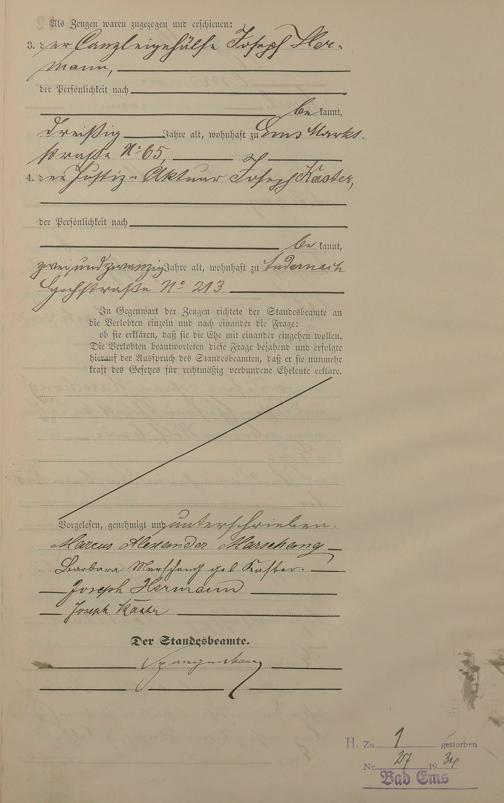 Als Zeugen waren zugezogen und erschienen:
3. der Canzleigehülfe Joseph Her-
mann,
der Persönlichkeit nach
be kannt,
dreißig Jahre alt, wohnhaft zu Ems Markt-
straße No 65,
4. der Justiz-Aktuar Joseph Kaster,
der Persönlichkeit nach
be kannt,
zweiundzwanzig Jahre alt, wohnhaft zu Andernach
Hochstraße No 213
In Gegenwart der Zeugen richtete der Standesbeamte an
die Verlobten einzeln und nach einander die Frage:
ob sie erklären, daß sie die Ehe mit einander eingehen wollen.
Die Verlobten beantworteten diese Frage bejahend und erfolgte
hierauf der Ausspruch des Standesbeamten, daß er sie nunmehr
kraft des Gesetzes für rechtmäßig verbundene Eheleute erkläre.
Vorgelesen, genehmigt und unterschrieben.
Marcus Alexander Marschang
Barbara Marschang geb Kaster.
Joseph Hermann
Joseph Kaster
Der Standesbeamte.
H. Zu 1 gestorben
Nr. 19 34
Bad Ems